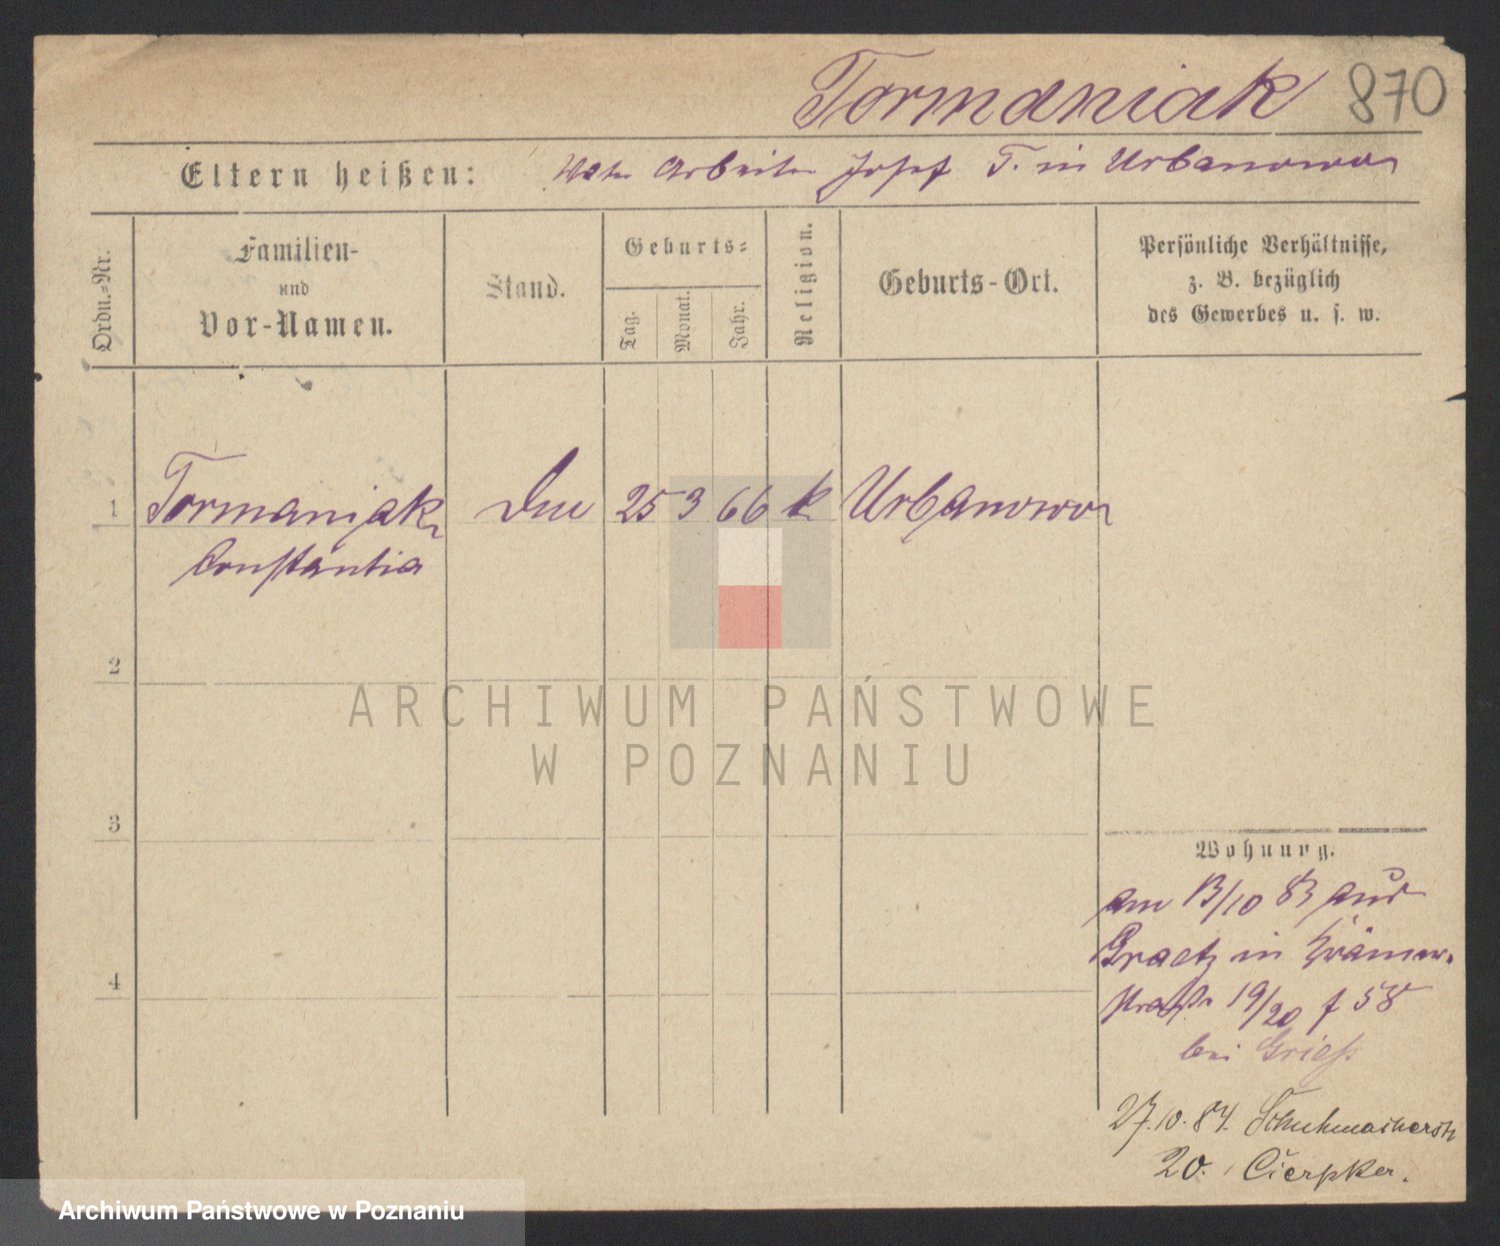 Tormaniak 870
Eltern heißen: Arbeiter Josef T. in Urbanowo
Ordn.=Nr.
Familien-
und
Vor-Namen.
Stand.
Geburts=
Tag.
Monat.
Jahr.
Religion.
Geburts-Ort.
Persönliche Verhältnisse,
z. B. bezüglich
des Gewerbes u. s. w.
1 Tormaniak 25 3 66 k Urbanowo
Constantia
2
ARCHIWUM PAŃSTWOWE
W POZNANIU
3
4
Wohnung.
am 13/10 83 aus
Graetz in Krämer-
straße 19/20 f 58
bei Griess
27.10.84. Schuhmacherstr
20. Cierpka.
Archiwum Państwowe w Poznaniu